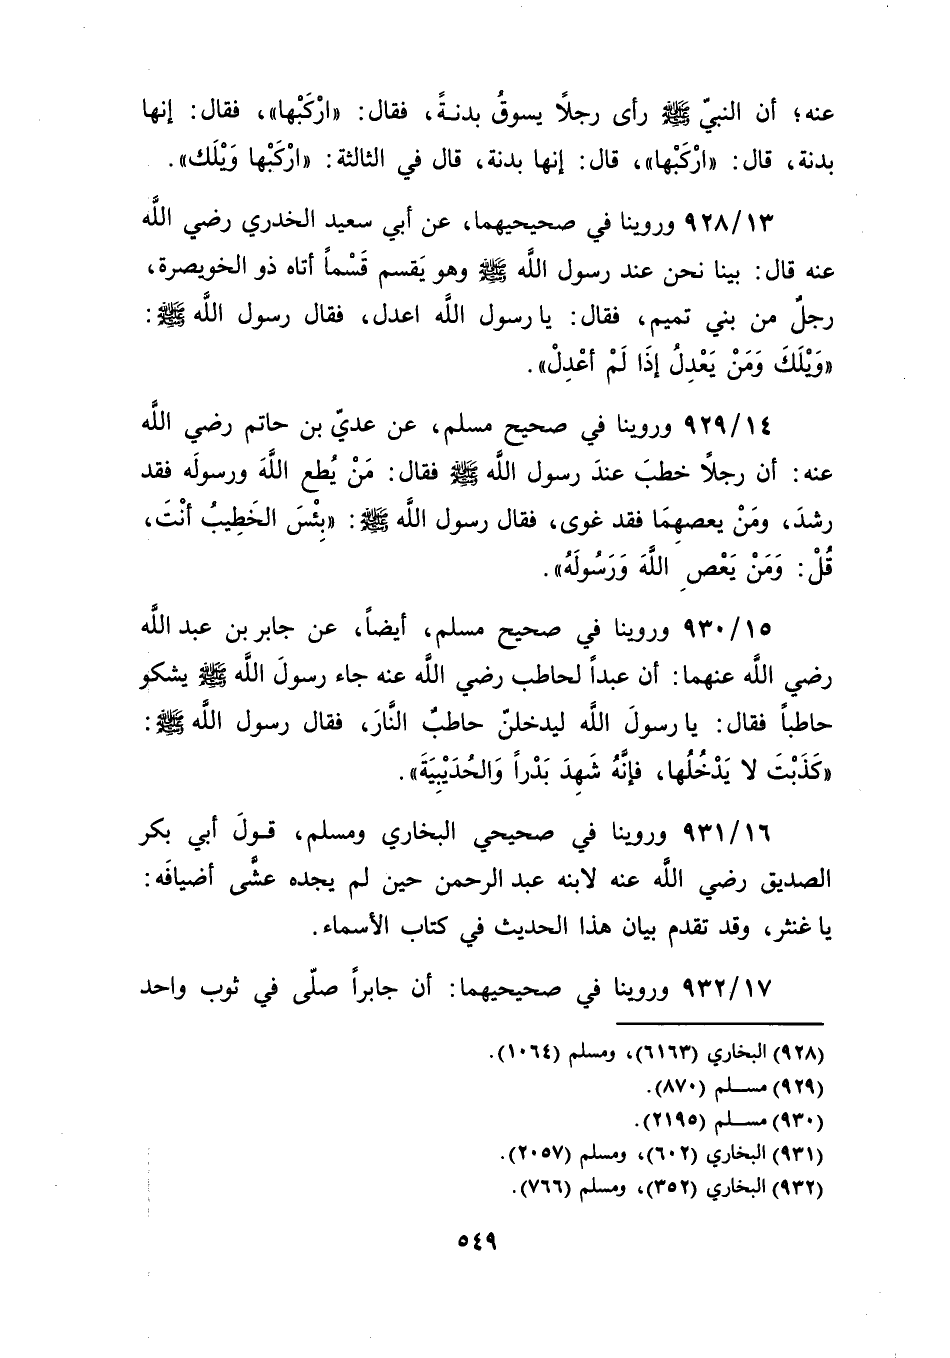 عنه؛ أن النبيّ ﷺ رأى رجلاً يسوقُ بدنـةً، فقال: «ارْكَبْها»، فقال: إنها
بدنة، قال: «ارْكَبْها»، قال: إنها بدنة، قال في الثالثة: «ارْكَبْها وَيْلَك».
٩٢٨/١٣ وروينا في صحيحيهما، عن أبي سعيد الخدري رضي اللَّه
عنه قال: بينا نحن عند رسول اللَّه ﷺ وهو يَقسم قَسْماً أتاه ذو الخويصرة،
رجلٌ من بني تميم، فقال: يا رسول اللَّه اعدل، فقال رسول اللَّه ﷺ:
«وَيْلَكَ وَمَنْ يَعْدِلُ إذَا لَمْ أعْدِلْ».
٩٢٩/١٤ وروينا في صحيح مسلم، عن عديّ بن حاتم رضي اللَّه
عنه: أن رجلاً خطبَ عندَ رسول اللَّه ﷺ فقال: مَنْ يُطع اللَّهَ ورسولَه فقد
رشدَ، ومَنْ يعصهِمَا فقد غوى، فقال رسول اللَّه ﷺ: «بِئْسَ الخَطِيبُ أنْتَ،
قُلْ: وَمَنْ يَعْصِ اللَّهَ وَرَسُولَهُ».
٩٣٠/١٥ وروينا في صحيح مسلم، أيضاً، عن جابر بن عبد اللَّه
رضي اللَّه عنهما: أن عبداً لحاطب رضي اللَّه عنه جاء رسولَ اللَّه ﷺ يشكو
حاطباً فقال: يا رسولَ اللَّه ليدخلنّ حاطبٌ النَّارَ، فقال رسول اللَّه ﷺ:
«كَذَبْتَ لا يَدْخُلُها، فإنَّهُ شَهِدَ بَدْراً وَالحُدَيْبِيَةَ».
٩٣١/١٦ وروينا في صحيحي البخاري ومسلم، قـولَ أبي بكر
الصديق رضي اللَّه عنه لابنه عبد الرحمن حين لم يجده عشَّى أضيافَه:
يا غنثر، وقد تقدم بيان هذا الحديث في كتاب الأسماء.
٩٣٢/١٧ وروينا في صحيحيهما: أن جابراً صلّى في ثوب واحد
(٩٢٨) البخاري (٦١٦٣)، ومسلم (١٠٦٤).
(٩٢٩) مسلم (٨٧٠).
(٩٣٠) مسلم (٢١٩٥).
(٩٣١) البخاري (٦٠٢)، ومسلم (٢٠٥٧).
(٩٣٢) البخاري (٣٥٢)، ومسلم (٧٦٦).
٥٤٩